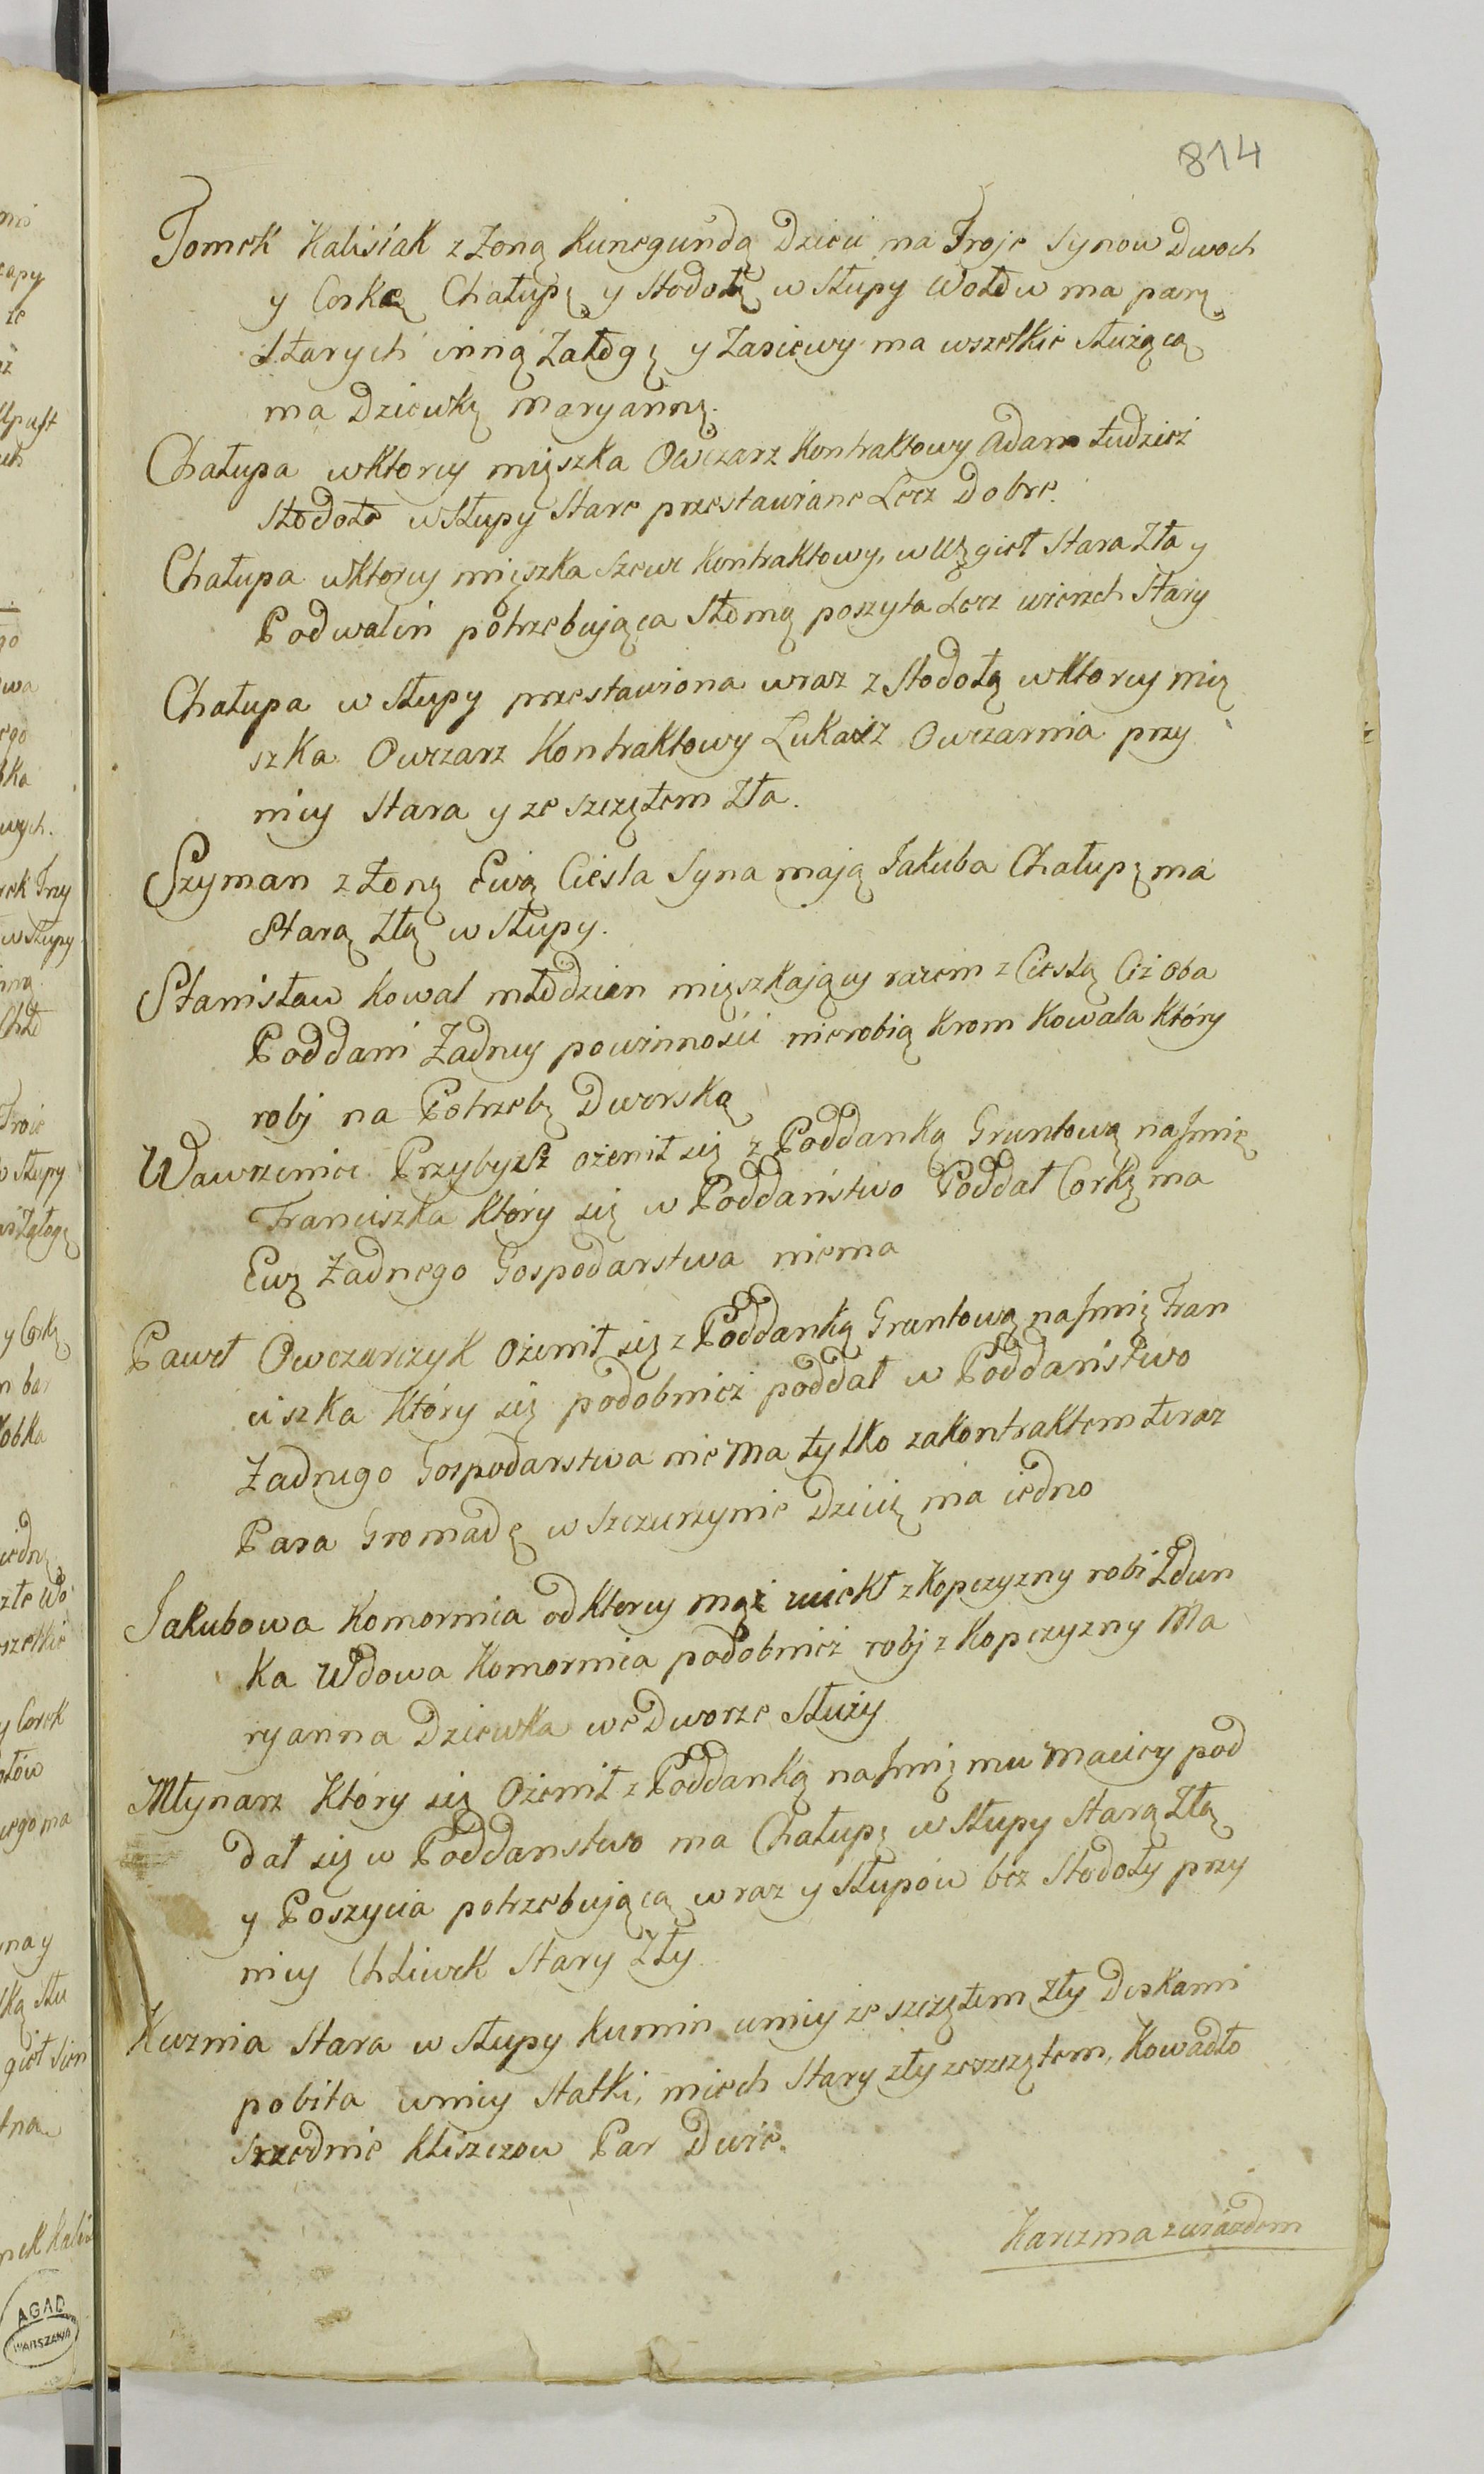 814
Tomek Kalisiak z Żoną Kunegundą Dzieci ma Troje Synow Dwoch
y Corkę Chałupę y Stodołę w Słupy Wołów ma parę
Starych inną Załogę y Zasiewy ma wszelkie Służącą
ma Dziewkę Maryannę.
Chałupa wktorey mięszka Owczarz Kontraktowy Adam tudzież
Stodoła w Słupy Stare przestawiane Lecz Dobre.
Chałupa wktorey mięszka Szewc Kontraktowy, w Węgieł Stara Zła y
Podwalin potrzebująca Słomą poszyta Lecz wierzch Stary
Chałupa w Słupy przestawiona wraz z Stodołą wktorey mię
szka Owczarz Kontraktowy Łukasz Owczarnia przy
niey Stara y ze szczętem Zła.
Szyman z Żoną Ewą Cieśla Syna mają Jakuba Chałupę ma
Starą Złą w Słupy.
Stanisław Kowal młodzian mięszkaiący razem z Cieślą Ciż Oba
Poddani Żadney powinności nierobią krom Kowala Który
robj na Potrzebę Dworską
Wawrzeniec Przybysz ożenił się z Poddanką Gruntową na Jmię
Franciszka Który się w Poddaństwo Poddał Corkę ma
Ewę Żadnego Gospodarstwa niema
Paweł Owczarczyk Ożenił się z Poddanką Gruntową na Jmię Fran
ciszka Który się podobnież poddał w Poddaństwo
Żadnego Gospodarstwa nie Ma tylko zakontraktem teraz
Pasa Gromadę w Szczurzynie Dziecię ma iedno
Jakubowa Komornica odktorey mąż uciekł z Kopczyzny robi Zdun
ka Wdowa Komornica podobnież robj z Kopczyzny Ma
ryanna Dziewka we Dworze Służy
Młynarz Który się Ożenił z Poddanką na Jmię mu Maciey pod
dał się w Poddanstwo ma Chałupę w Słupy Starą Złą
y Poszycia potrzebującą wraz y Słupów bez Stodoły przy
niey Chliwek Stary Zły
Kuznia Stara w Słupy Kumin wniey ze szczętem zły Deskami
pobita wniey Statki, miech Stary zły zeszczętem, Kowadło
Srzednie Kliszczow Par Dwie.
Karczma z wiazdem
AGAD
WARSZAWA